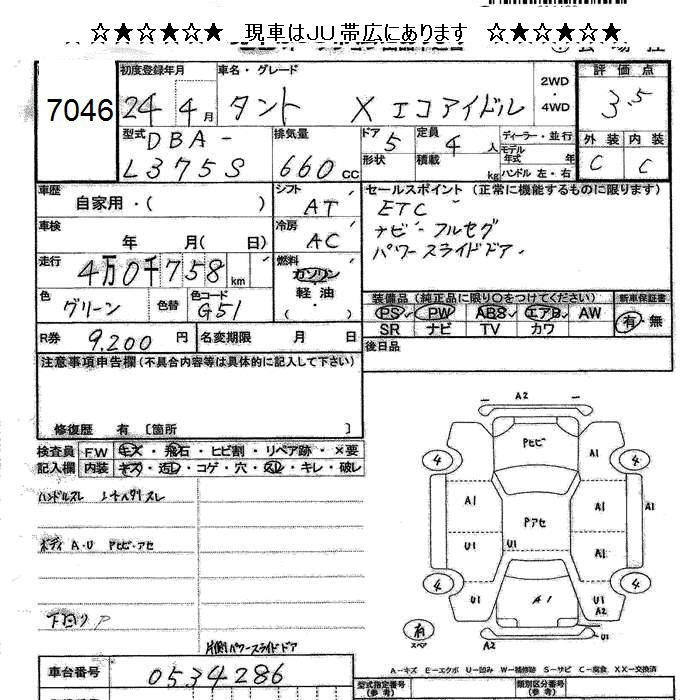 ☆★☆★☆★ 現車はJU帯広にあります ☆★☆★☆★
初度登録年月 車名・グレード 2WD・4WD 評価点
7046 24 4月 タント X エコアイドル 3.5
型式 DBA-L375S 排気量 660cc ドア 5 形状 定員 4人 積載 kg ディーラー・並行 モデル年式 年 ハンドル 左・右 外装 C 内装 C
車歴 自家用・( )
シフト AT
セールスポイント (正常に機能するものに限ります)
ETC
ナビ フルセグ
パワースライドドア
車検 年 月( 日)
冷房 AC
走行 4万0千758km
燃料 ガソリン 軽油 ( ・ )
色 グリーン 色替 色コード G51
装備品 (純正品に限り○をつけてください) 新車保証書
PS PW ABS エアB AW 有・無
SR ナビ TV カワ
R券 9,200円 名変期限 月 日
後日品
注意事項申告欄 (不具合内容等は具体的に記入して下さい)
修復歴 有 〔箇所 〕
検査員記入欄 FW キズ・飛石・ヒビ割・リペア跡・×要
内装 キズ・汚レ・コゲ・穴・スレ・キレ・破レ
ハンドルスレ
ボディ A・U Pヒビ・アセ
片側パワースライドドア
車台番号 0534286
A2
Pヒビ
4 A1 4
A1 Pアセ A1 A1
U1 U1 A1
4 4
U1 A1 U1 A2
有 スペア
A2 U1
A-キズ E-エクボ U-凹み W-補修跡 S-サビ C-腐食 XX-交換済
型式指定番号 (参考) 類別区分番号 (参考)